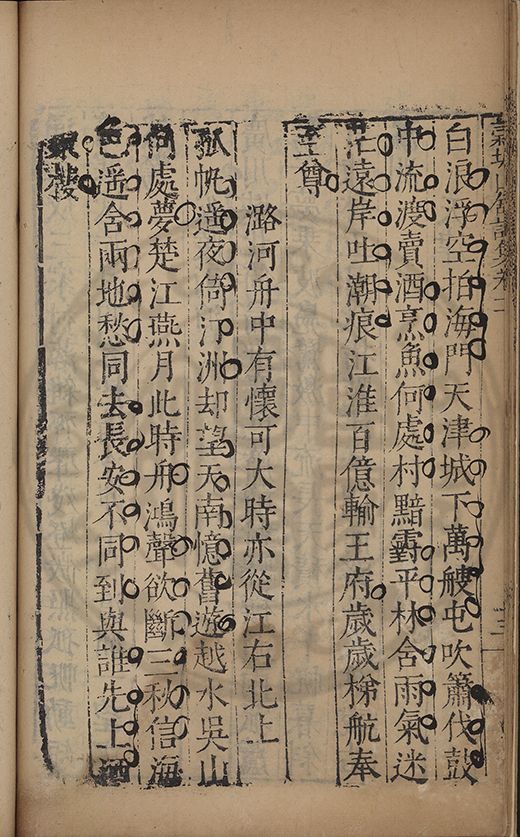 詩集卷二
白浪浮空拍海門天津城下萬艘屯吹簫伐鼓
中流渡賣酒烹魚何處村黯平林含雨氣迷
茫遠岸吐潮痕江淮百億輸王府歲歲梯航奉
至尊
潞河舟中有懷可大時亦從江右北上
孤帆遥夜倚汀洲却望天南憶舊遊越水吳山
何處夢楚江燕月此時舟鴻聲欲斷三秋信海
色遥含兩地愁同去長安不同到與誰先上酒
家樓